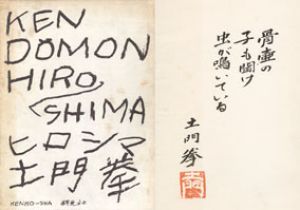 KEN
DOMON
HIRO
SHIMA
ヒロシマ
土門拳
KENKO-SHA
骨壺の
子も聞け
虫が鳴いている
土門拳